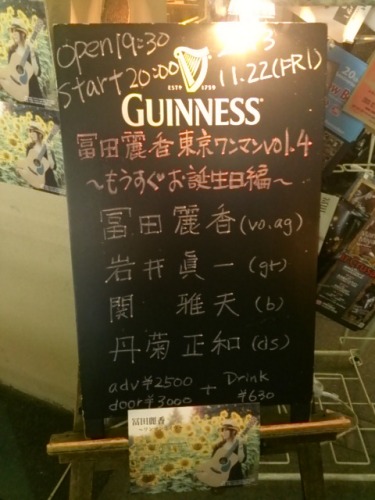 open19:30
start20:00
11.22(FRI)
ESTD 1759
GUINNESS
冨田麗香東京ワンマンvol.4
〜もうすぐお誕生日編〜
冨田麗香(vo.ag)
岩井眞一(gt)
関 雅天(b)
丹菊正和(ds)
adv¥2500 + Drink
door¥3000 ¥630
冨田麗香